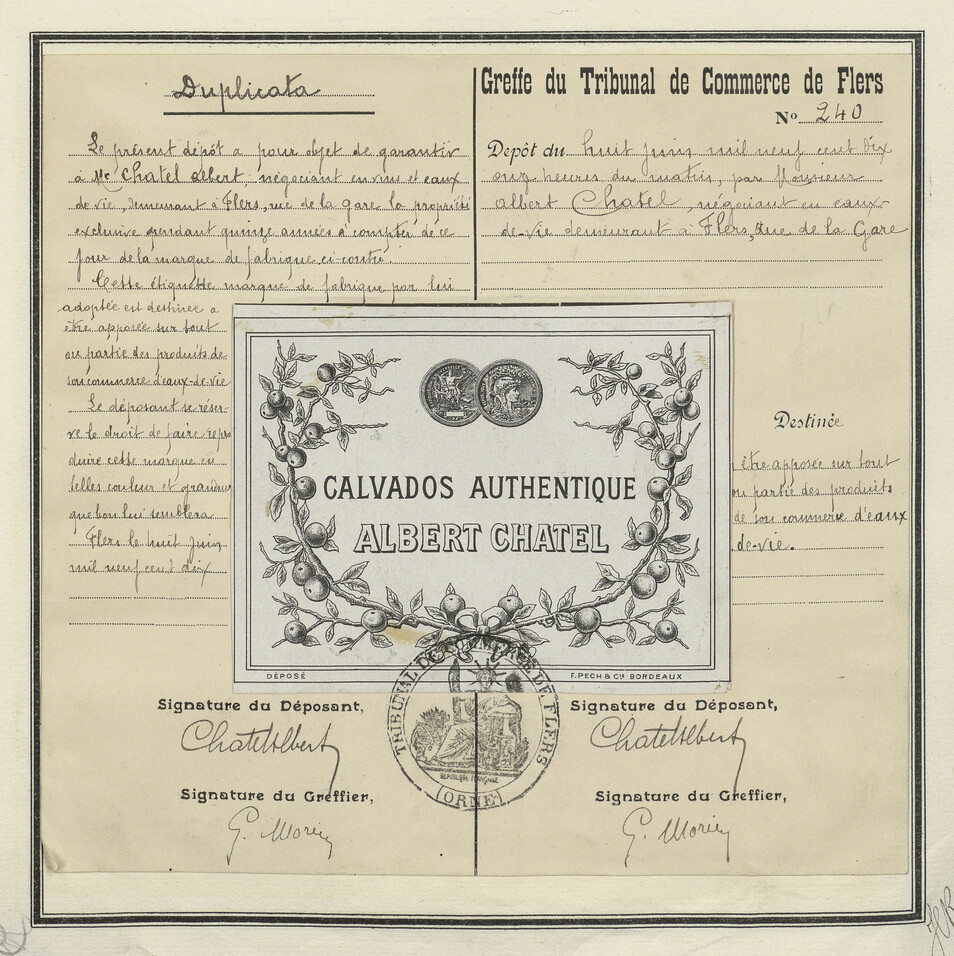 Duplicata
Le présent dépôt a pour objet de garantir
à Mr Chatel albert, négociant en vins et eaux
de vie, demeurant à Flers, rue de la gare la propriété
exclusive pendant quinze années à compter de ce
jour de la marque de fabrique ci-contre.
Cette étiquette marque de fabrique par lui
adoptée est destinée a
être apposée sur tout
ou partie des produits de
son commerce d'eaux-de-vie
Le déposant se réser-
ve le droit de faire repro
duire cette marque en
telles couleur et grandeur
que bon lui semblera
Flers le huit juin
mil neuf cent dix
Greffe du Tribunal de Commerce de Flers
No 240
Depôt du huit juin mil neuf cent dix
onze heures du matin, par Monsieur
albert Chatel, négociant en eaux-
de-vie demeurant à Flers, Rue de la Gare
Destinée
à être apposée sur tout
ou partie des produits
de son commerce d'eaux
de-vie.
CALVADOS AUTHENTIQUE
ALBERT CHATEL
DÉPOSÉ
F. PECH & Cie BORDEAUX
TRIBUNAL DE COMMERCE DE FLERS
REPUBLIQUE FRANÇAISE
(ORNE)
Signature du Déposant,
ChatelAlbert
Signature du Greffier,
G. Morin
Signature du Déposant,
ChatelAlbert
Signature du Greffier,
G. Morin